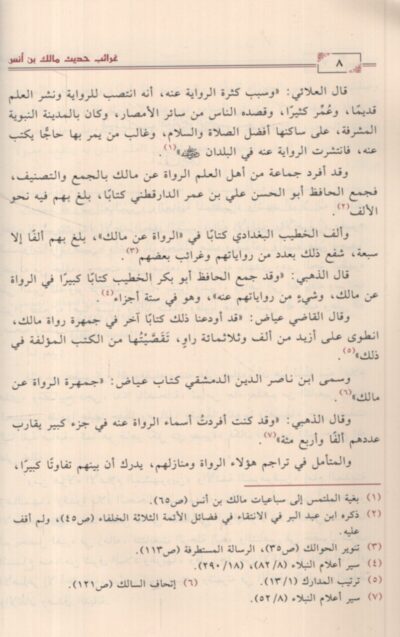 غرائب حديث مالك بن أنس
٨
قال العلائي: «وسبب كثرة الرواية عنه، أنه انتصب للرواية ونشر العلم
قديمًا، وعُمِّر كثيرًا، وقصده الناس من سائر الأمصار، وكان بالمدينة النبوية
المشرفة، على ساكنها أفضل الصلاة والسلام، وغالب من يمر بها حاجًّا يكتب
عنه، فانتشرت الرواية عنه في البلدان»(١).
وقد أفرد جماعة من أهل العلم الرواة عن مالك بالجمع والتصنيف،
فجمع الحافظ أبو الحسن علي بن عمر الدارقطني كتابًا، بلغ بهم فيه نحو
الألف(٢).
وألف الخطيب البغدادي كتابًا في «الرواة عن مالك»، بلغ بهم ألفًا إلا
سبعة، شفع ذلك بعدد من رواياتهم وغرائب بعضهم(٣).
قال الذهبي: «وقد جمع الحافظ أبو بكر الخطيب كتابًا كبيرًا في الرواة
عن مالك، وشيءٍ من رواياتهم عنه»، وهو في ستة أجزاء(٤).
وقال القاضي عياض: «قد أودعنا ذلك كتابًا آخر في جمهرة رواة مالك،
انطوى على أزيد من ألف وثلاثمائة راوٍ، تَقَصَّيْتُها من الكتب المؤلفة في
ذلك»(٥).
وسمى ابن ناصر الدين الدمشقي كتاب عياض: «جمهرة الرواة عن
مالك»(٦).
وقال الذهبي: «وقد كنت أفردتُ أسماء الرواة عنه في جزء كبير يقارب
عددهم ألفًا وأربع مئة»(٧).
والمتأمل في تراجم هؤلاء الرواة ومنازلهم، يدرك أن بينهم تفاوتًا كبيرًا،
(١) بغية الملتمس إلى سباعيات مالك بن أنس (ص٦٥).
(٢) ذكره ابن عبد البر في الانتقاء في فضائل الأئمة الثلاثة الخلفاء (ص٤٥)، ولم أقف
عليه.
(٣) تنوير الحوالك (ص٣٥)، الرسالة المستطرفة (ص١١٣).
(٤) سير أعلام النبلاء (٨٢/٨)، (٢٩٠/١٨).
(٥) ترتيب المدارك (١٣/١). (٦) إتحاف السالك (ص١٢١).
(٧) سير أعلام النبلاء (٥٢/٨).